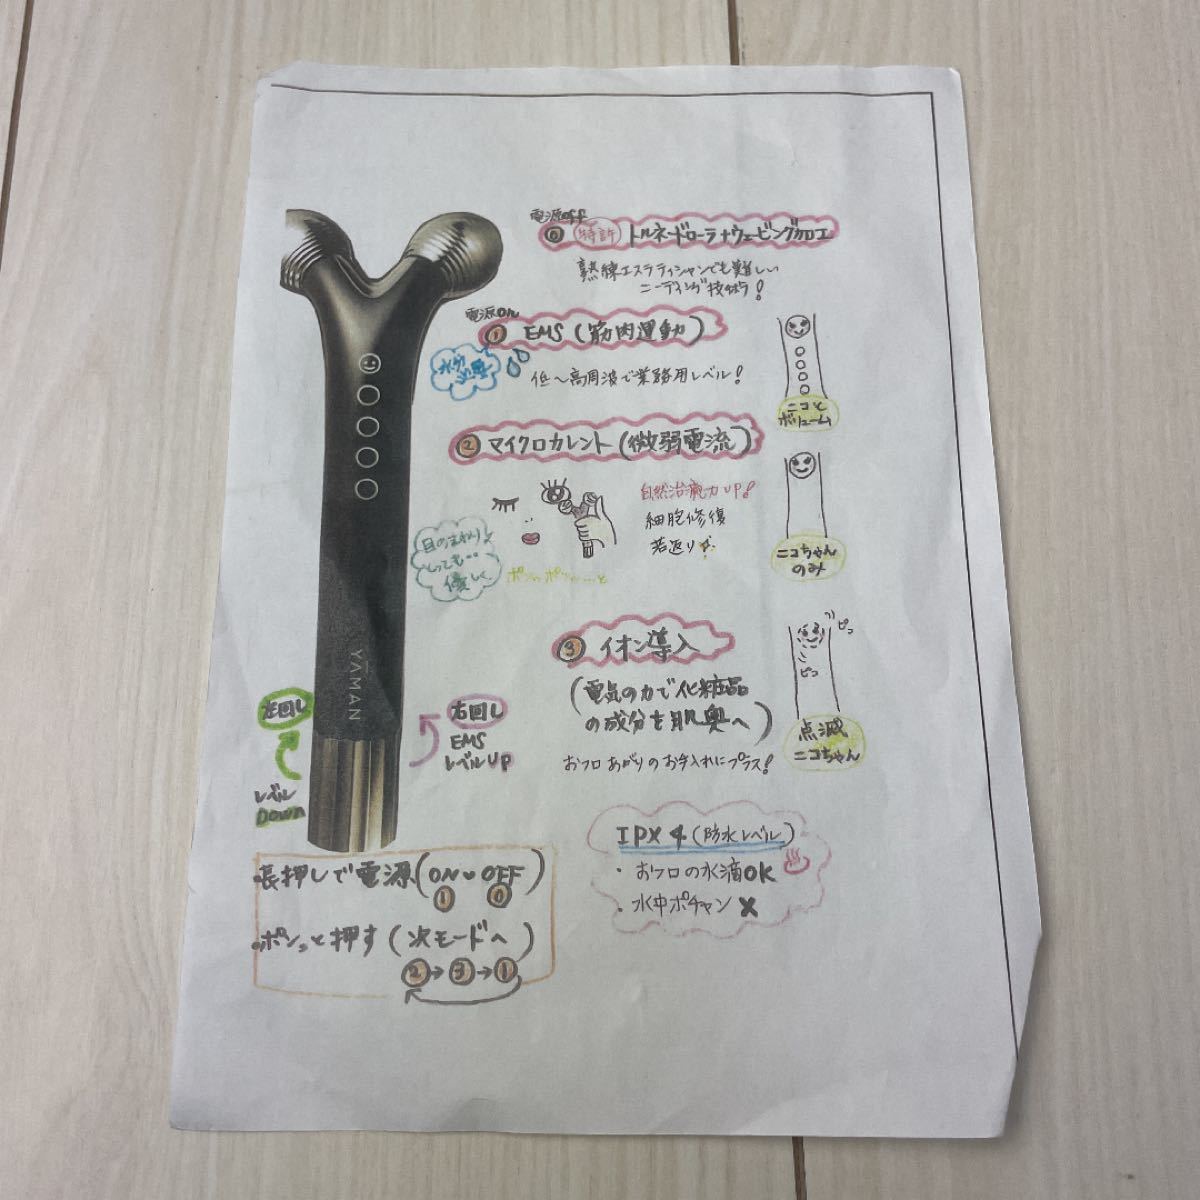 電源OFF
⓪ 特許 トルネードローラ+ウェービング加工
熟練エステティシャンでも難しい
ニーディング技せよう!
電源ON
① EMS (筋肉運動)
水分必要
低〜高周波で業務用レベル!
ニコと
ボリューム
② マイクロカレント (微弱電流)
自然治癒力UP!
細胞修復
若返り
目のまわり
とっても…
優しく
ポンッポンッ…と
ニコちゃん
のみ
③ イオン導入
(電気の力で化粧品
の成分を肌奥へ)
おフロあがりのお手入れにプラス!
ピコ
ピコ
点滅
ニコちゃん
YAMAN
左回し
レベル
Down
右回し
EMS
レベルUP
IPX4 (防水レベル)
・おフロの水滴OK
・水中ポチャン ×
・長押しで電源 (ON・OFF)
① ⓪
・ポンッと押す (次モードへ)
②→③→①